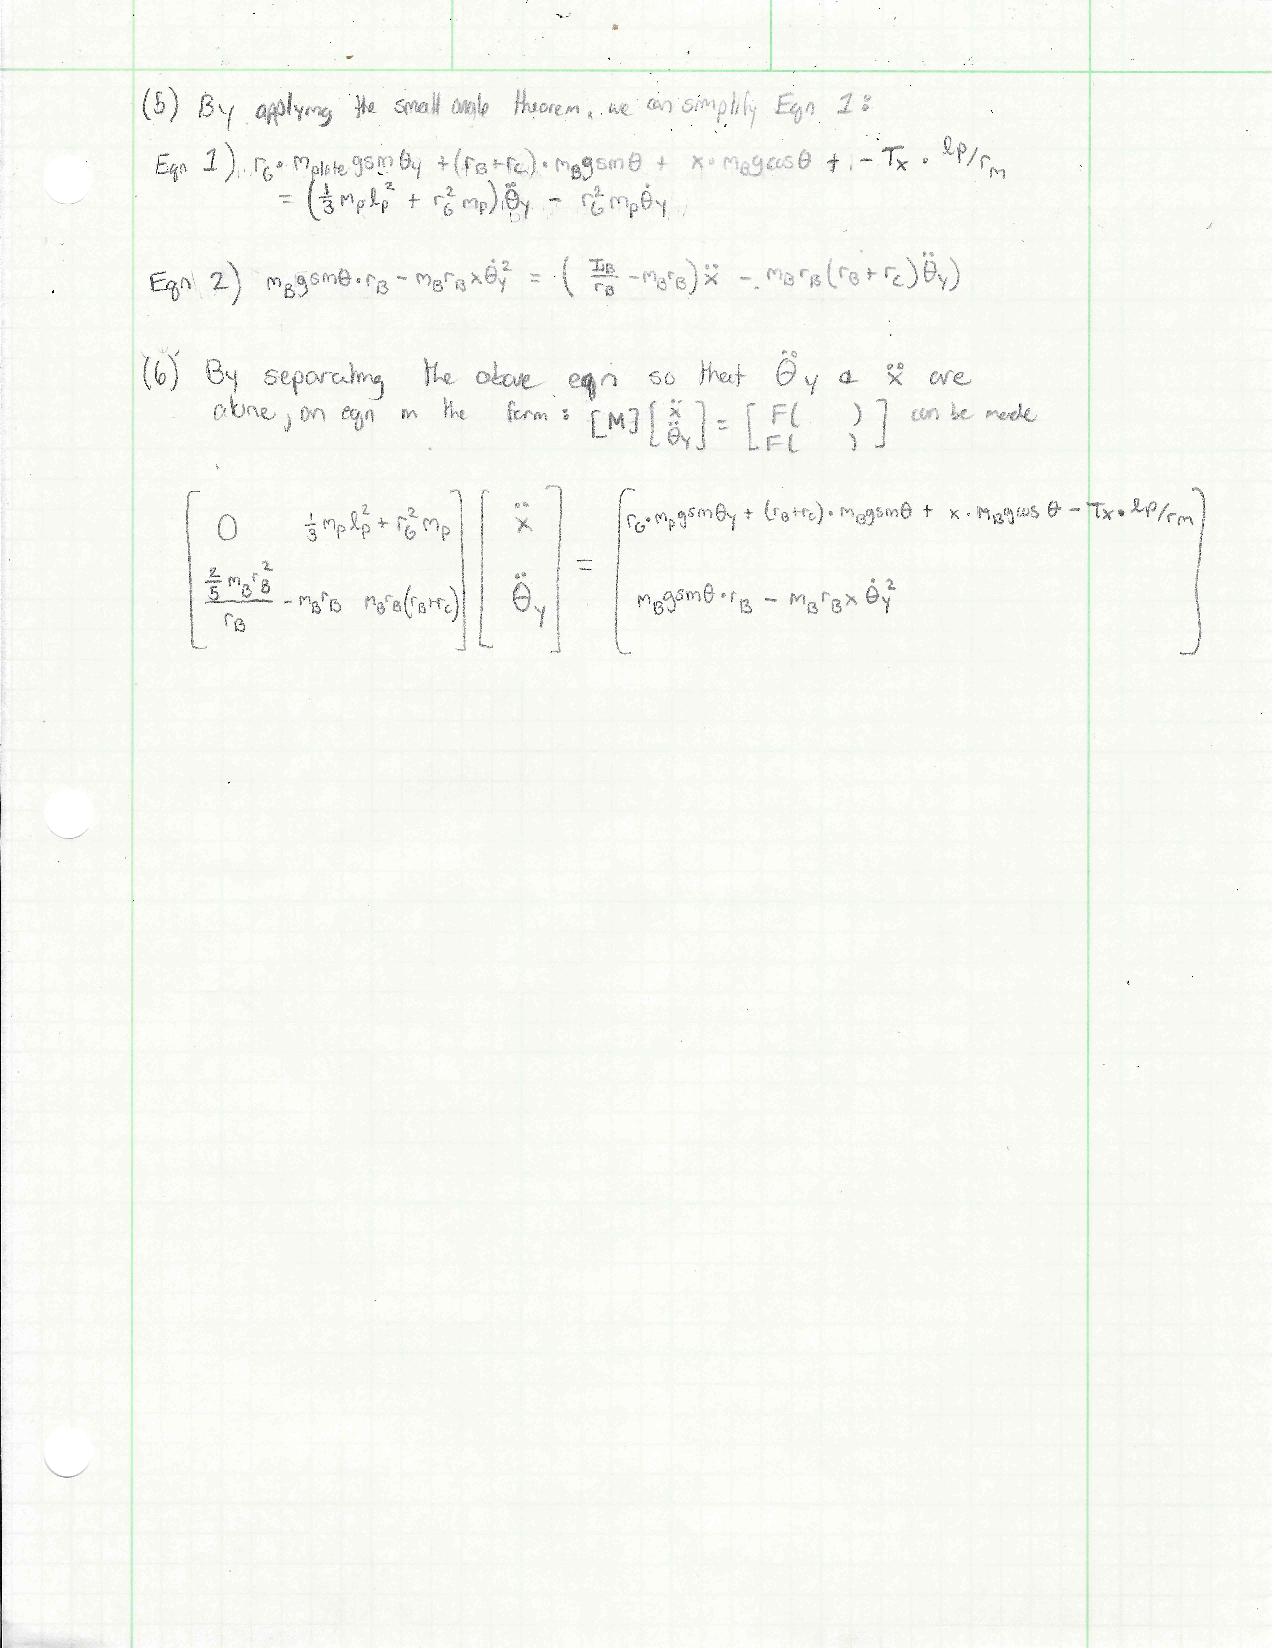 (5) By applying the small angle theorem, we can simplify Eqn 1:
Eqn 1) r_G · m_plate g sin θ_y + (r_B + r_C) · m_B g sin θ + x · m_B g cos θ + - T_x · l_P/r_m
= (1/3 m_p l_p² + r_G² m_p) θ̈_y - r_G² m_p θ̇_y
Eqn 2) m_B g sin θ · r_B - m_B r_B x θ̇_y² = ( I_B/r_B - m_B r_B) ẍ - m_B r_B (r_B + r_C) θ̈_y)
(6) By separating the above eqn so that θ̈_y & ẍ are
alone, an eqn in the form: [M] [ẍ θ̈_y] = [F( ) F( )] can be made
[0 1/3 m_p l_p² + r_G² m_p] [ẍ] = [r_G · m_p g sin θ_y + (r_B + r_C) · m_B g sin θ + x · m_B g cos θ - T_x · l_P/r_m]
[2/5 m_B r_B²/r_B - m_B r_B m_B r_B (r_B + r_C)] [θ̈_y] [m_B g sin θ · r_B - m_B r_B x θ̇_y²]